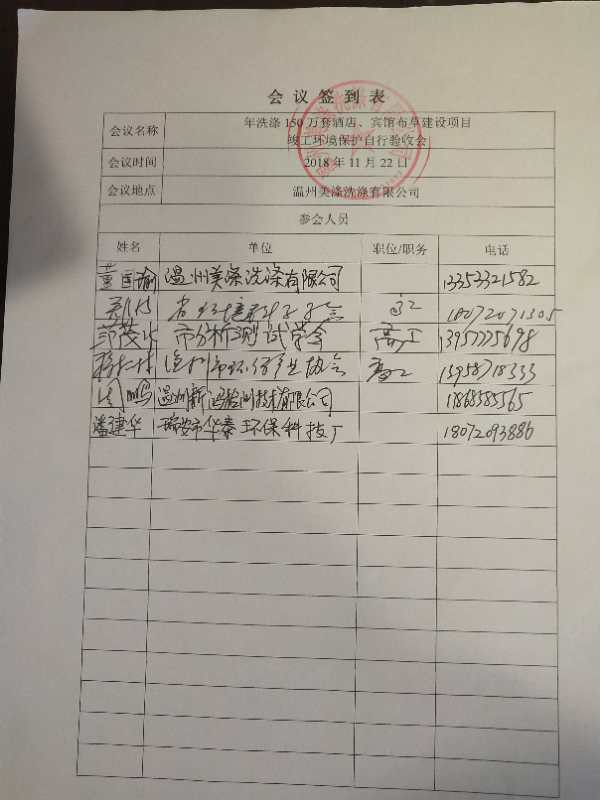 会议签到表
会议名称 年洗涤 150 万套酒店、宾馆布草建设项目
竣工环境保护自行验收会
会议时间 2018 年 11 月 22 日
会议地点 温州美涤洗涤有限公司
参会人员
姓名 单位 职位/职务 电话
董国瑜 温州美涤洗涤有限公司 13353321582
省 18072071305
市分析测试学会 高工 13957725698
协会 高工 13958718333
周鸣 温州新鸿检测技术有限公司 17868385565
潘建华 瑞安市华泰环保科技厂 18072093886